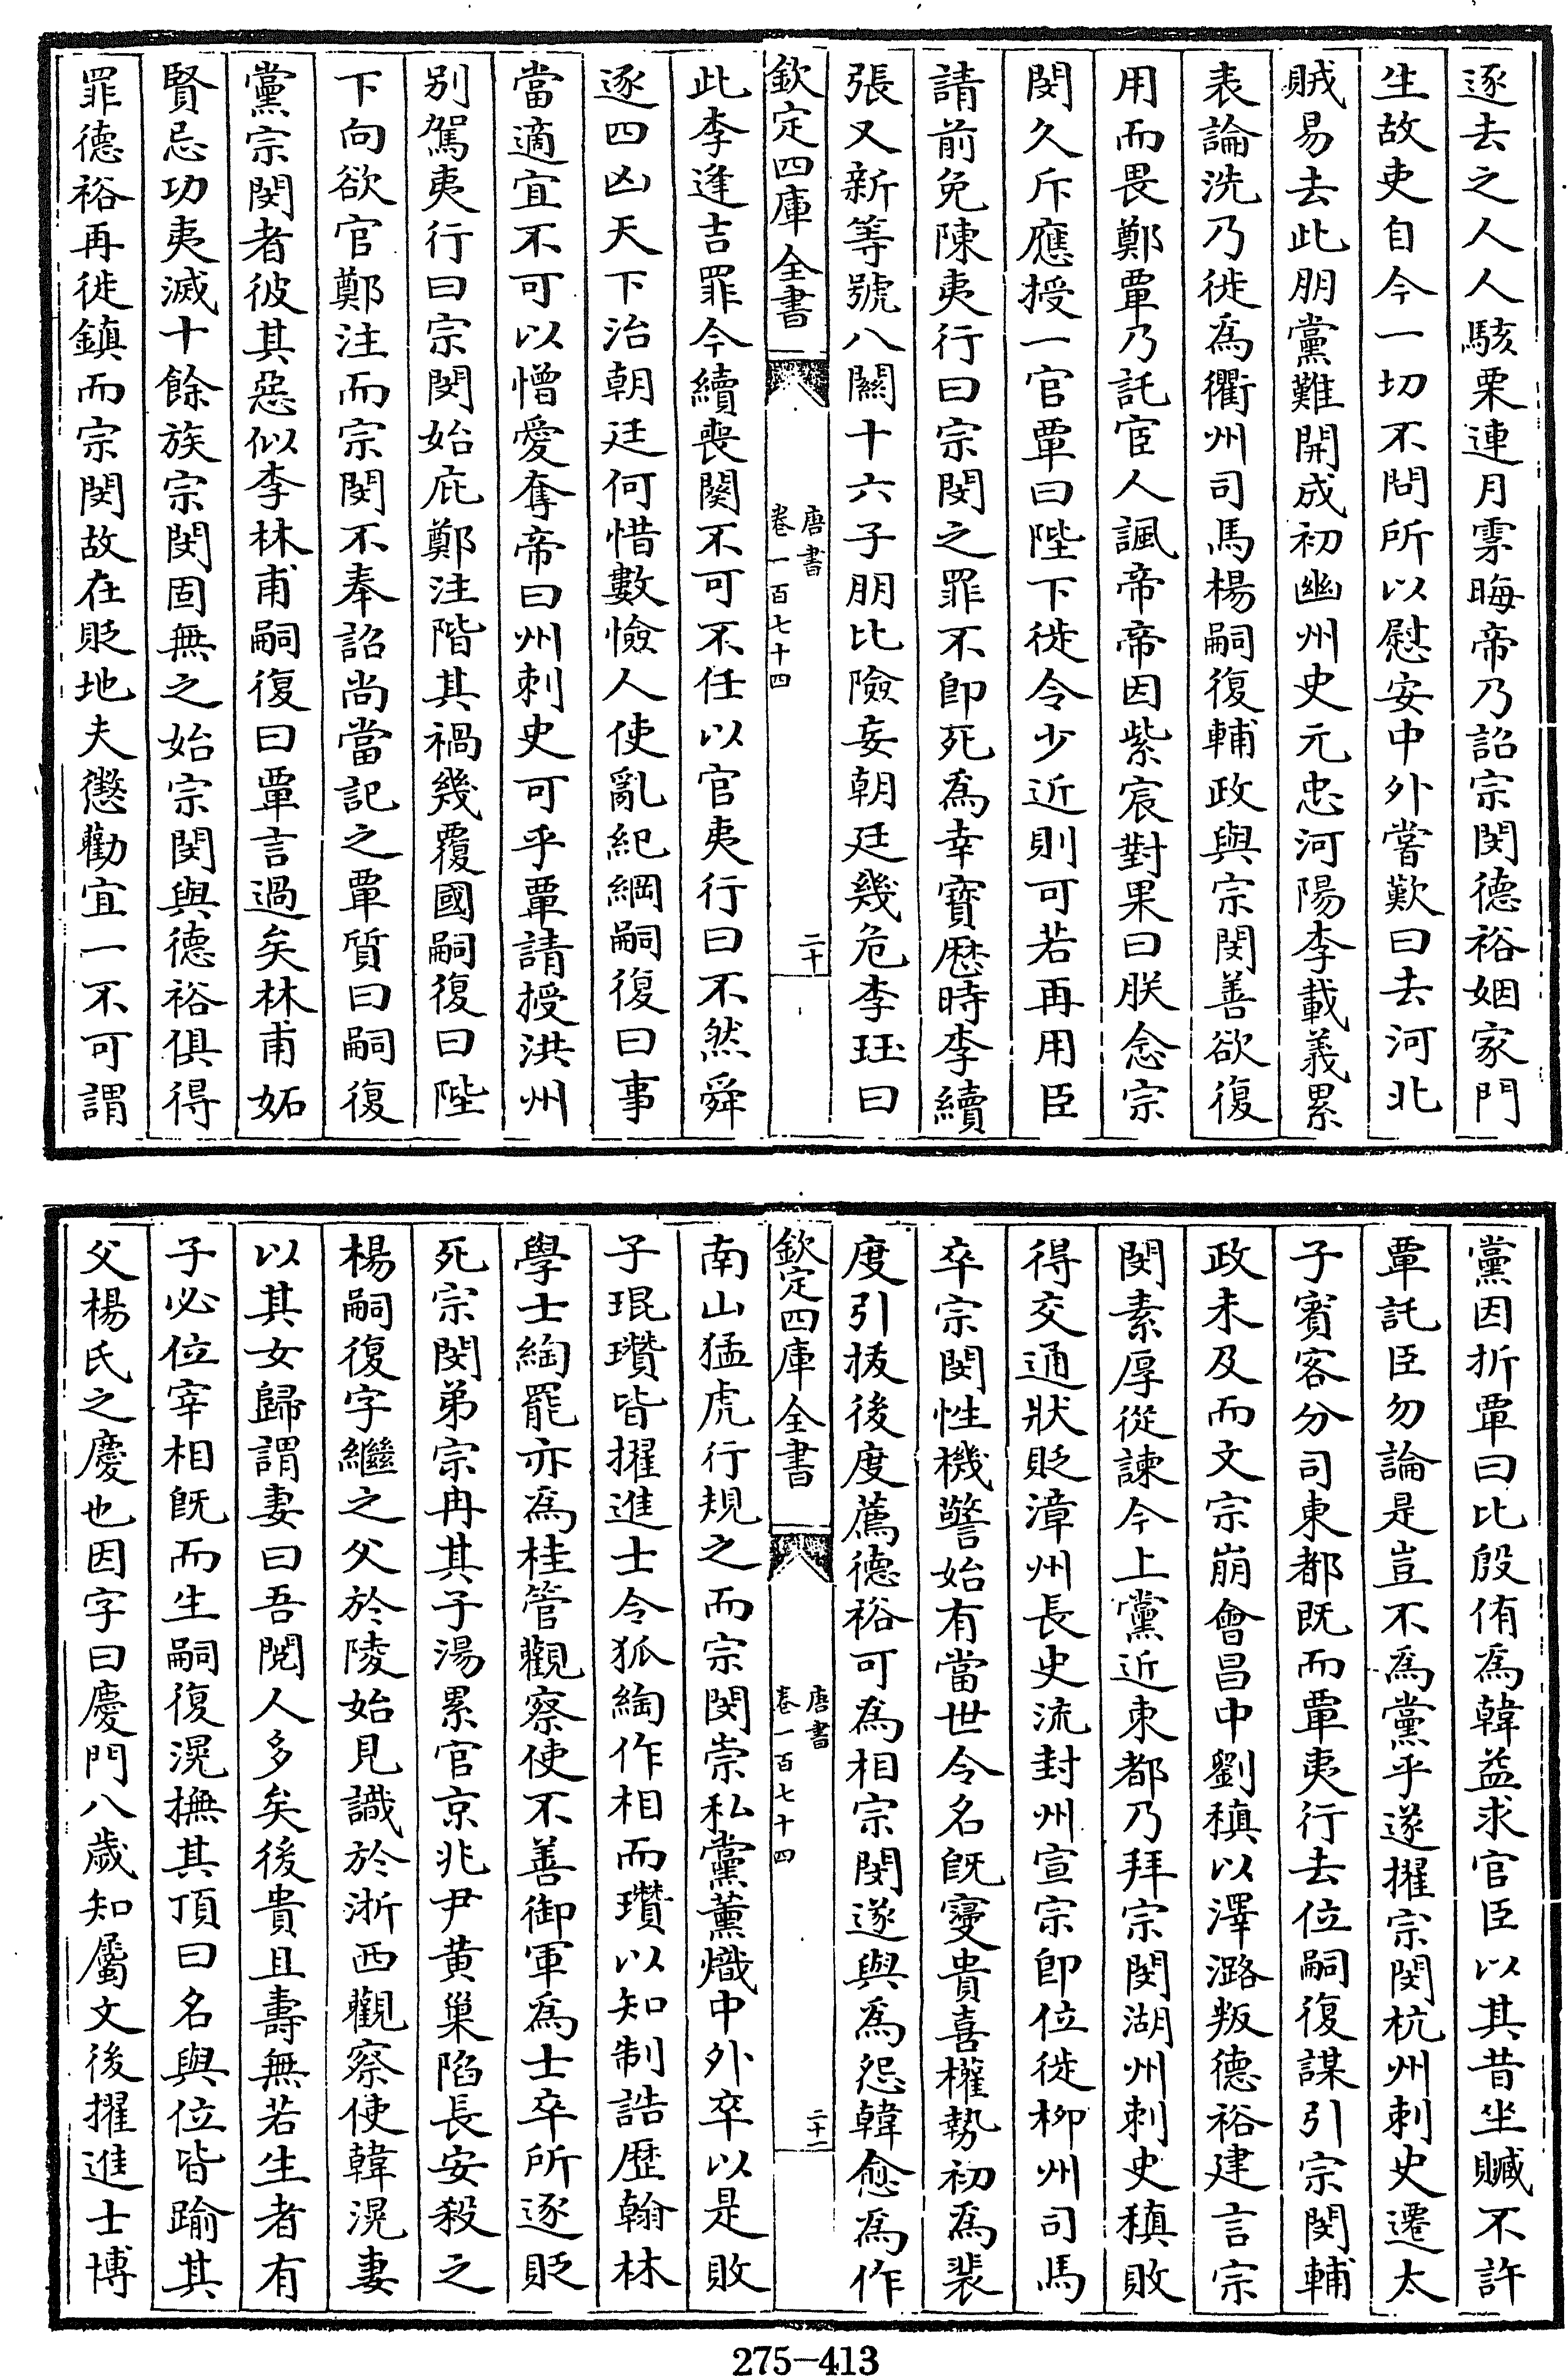 逐去之人人駭栗連月雺晦帝乃詔宗閔德裕姻家門
生故吏自今一切不問所以慰安中外嘗歎曰去河北
賊易去此朋黨難開成初幽州史元忠河陽李載義累
表論洗乃徙為衢州司馬楊嗣復輔政與宗閔善欲復
用而畏鄭覃乃託宦人諷帝帝因紫宸對果曰朕念宗
閔久斥應授一官覃曰陛下徙令少近則可若再用臣
請前免陳夷行曰宗閔之罪不即死為幸寳厯時李續
張又新等號八關十六子朋比險妄朝廷幾危李珏曰
欽定四庫全書
唐書
卷一百七十四
二十
此李逢吉罪今續喪闋不可不任以官夷行曰不然舜
逐四凶天下治朝廷何惜數憸人使亂紀綱嗣復曰事
當適宜不可以憎愛奪帝曰州刺史可乎覃請授洪州
别駕夷行曰宗閔始庇鄭注階其禍幾覆國嗣復曰陛
下向欲官鄭注而宗閔不奉詔尚當記之覃質曰嗣復
黨宗閔者彼其惡似李林甫嗣復曰覃言過矣林甫妬
賢忌功夷滅十餘族宗閔固無之始宗閔與德裕俱得
罪德裕再徙鎮而宗閔故在貶地夫懲勸宜一不可謂
黨因折覃曰比殷侑為韓益求官臣以其昔坐贓不許
覃託臣勿論是豈不為黨乎遂擢宗閔杭州刺史遷太
子賓客分司東都既而覃夷行去位嗣復謀引宗閔輔
政未及而文宗崩會昌中劉稹以澤潞叛德裕建言宗
閔素厚從諫今上黨近東都乃拜宗閔湖州刺史稹敗
得交通狀貶漳州長史流封州宣宗即位徙柳州司馬
卒宗閔性機警始有當世令名既寖貴喜權勢初為裴
度引拔後度薦德裕可為相宗閔遂與為怨韓愈為作
欽定四庫全書
唐書
卷一百七十四
二十一
南山猛虎行規之而宗閔崇私黨薰熾中外卒以是敗
子琨瓚皆擢進士令狐綯作相而瓚以知制誥歴翰林
學士綯罷亦為桂管觀察使不善御軍為士卒所逐貶
死宗閔弟宗冉其子湯累官京兆尹黄巢陷長安殺之
楊嗣復字繼之父於陵始見識於浙西觀察使韓滉妻
以其女歸謂妻曰吾閱人多矣後貴且壽無若生者有
子必位宰相既而生嗣復滉撫其頂曰名與位皆踰其
父楊氏之慶也因字曰慶門八歲知屬文後擢進士博
275-413